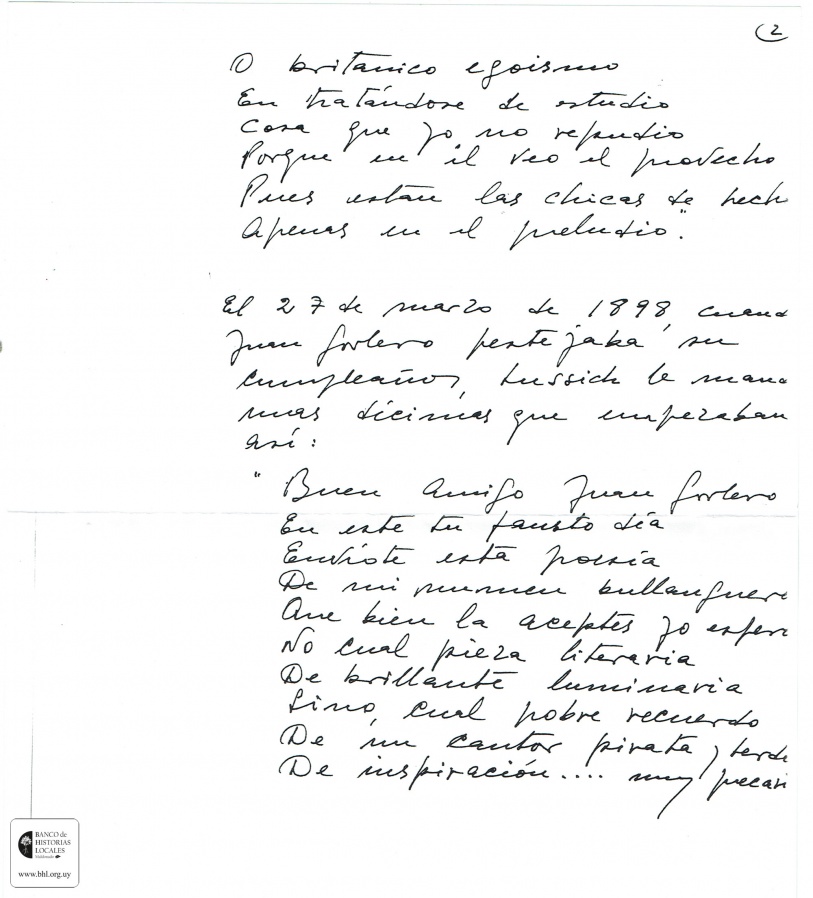 2
O británico egoismo
En tratándose de estudio
Cosa que yo no repudio
Porque en él veo el provecho
Pues están las chicas de hech
Apenas en el preludio".
El 27 de marzo de 1898, cuand
Juan Gorlero festejaba su
cumpleaños, Lussich le mand
unas décimas que empezaban
así:
" Buen Amigo Juan Gorlero
En este tu fausto día
Envíote esta poesía
De mi numen bullanguer
Que bien la aceptes yo esper
No cual pieza literaria
De brillante luminaria
Sino, cual pobre recuerdo
De un cantor pirata y lerd
De inspiración.... muy precari
BANCO de
HISTORIAS
LOCALES
Maldonado
www.bhl.org.uy